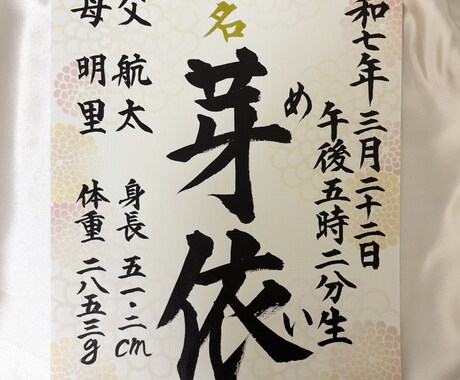 和七年三月二十二日
午後五時二分生
めい
名
芽依
父 航太 身長 五一・二cm
母 明里 体重 二八五三g